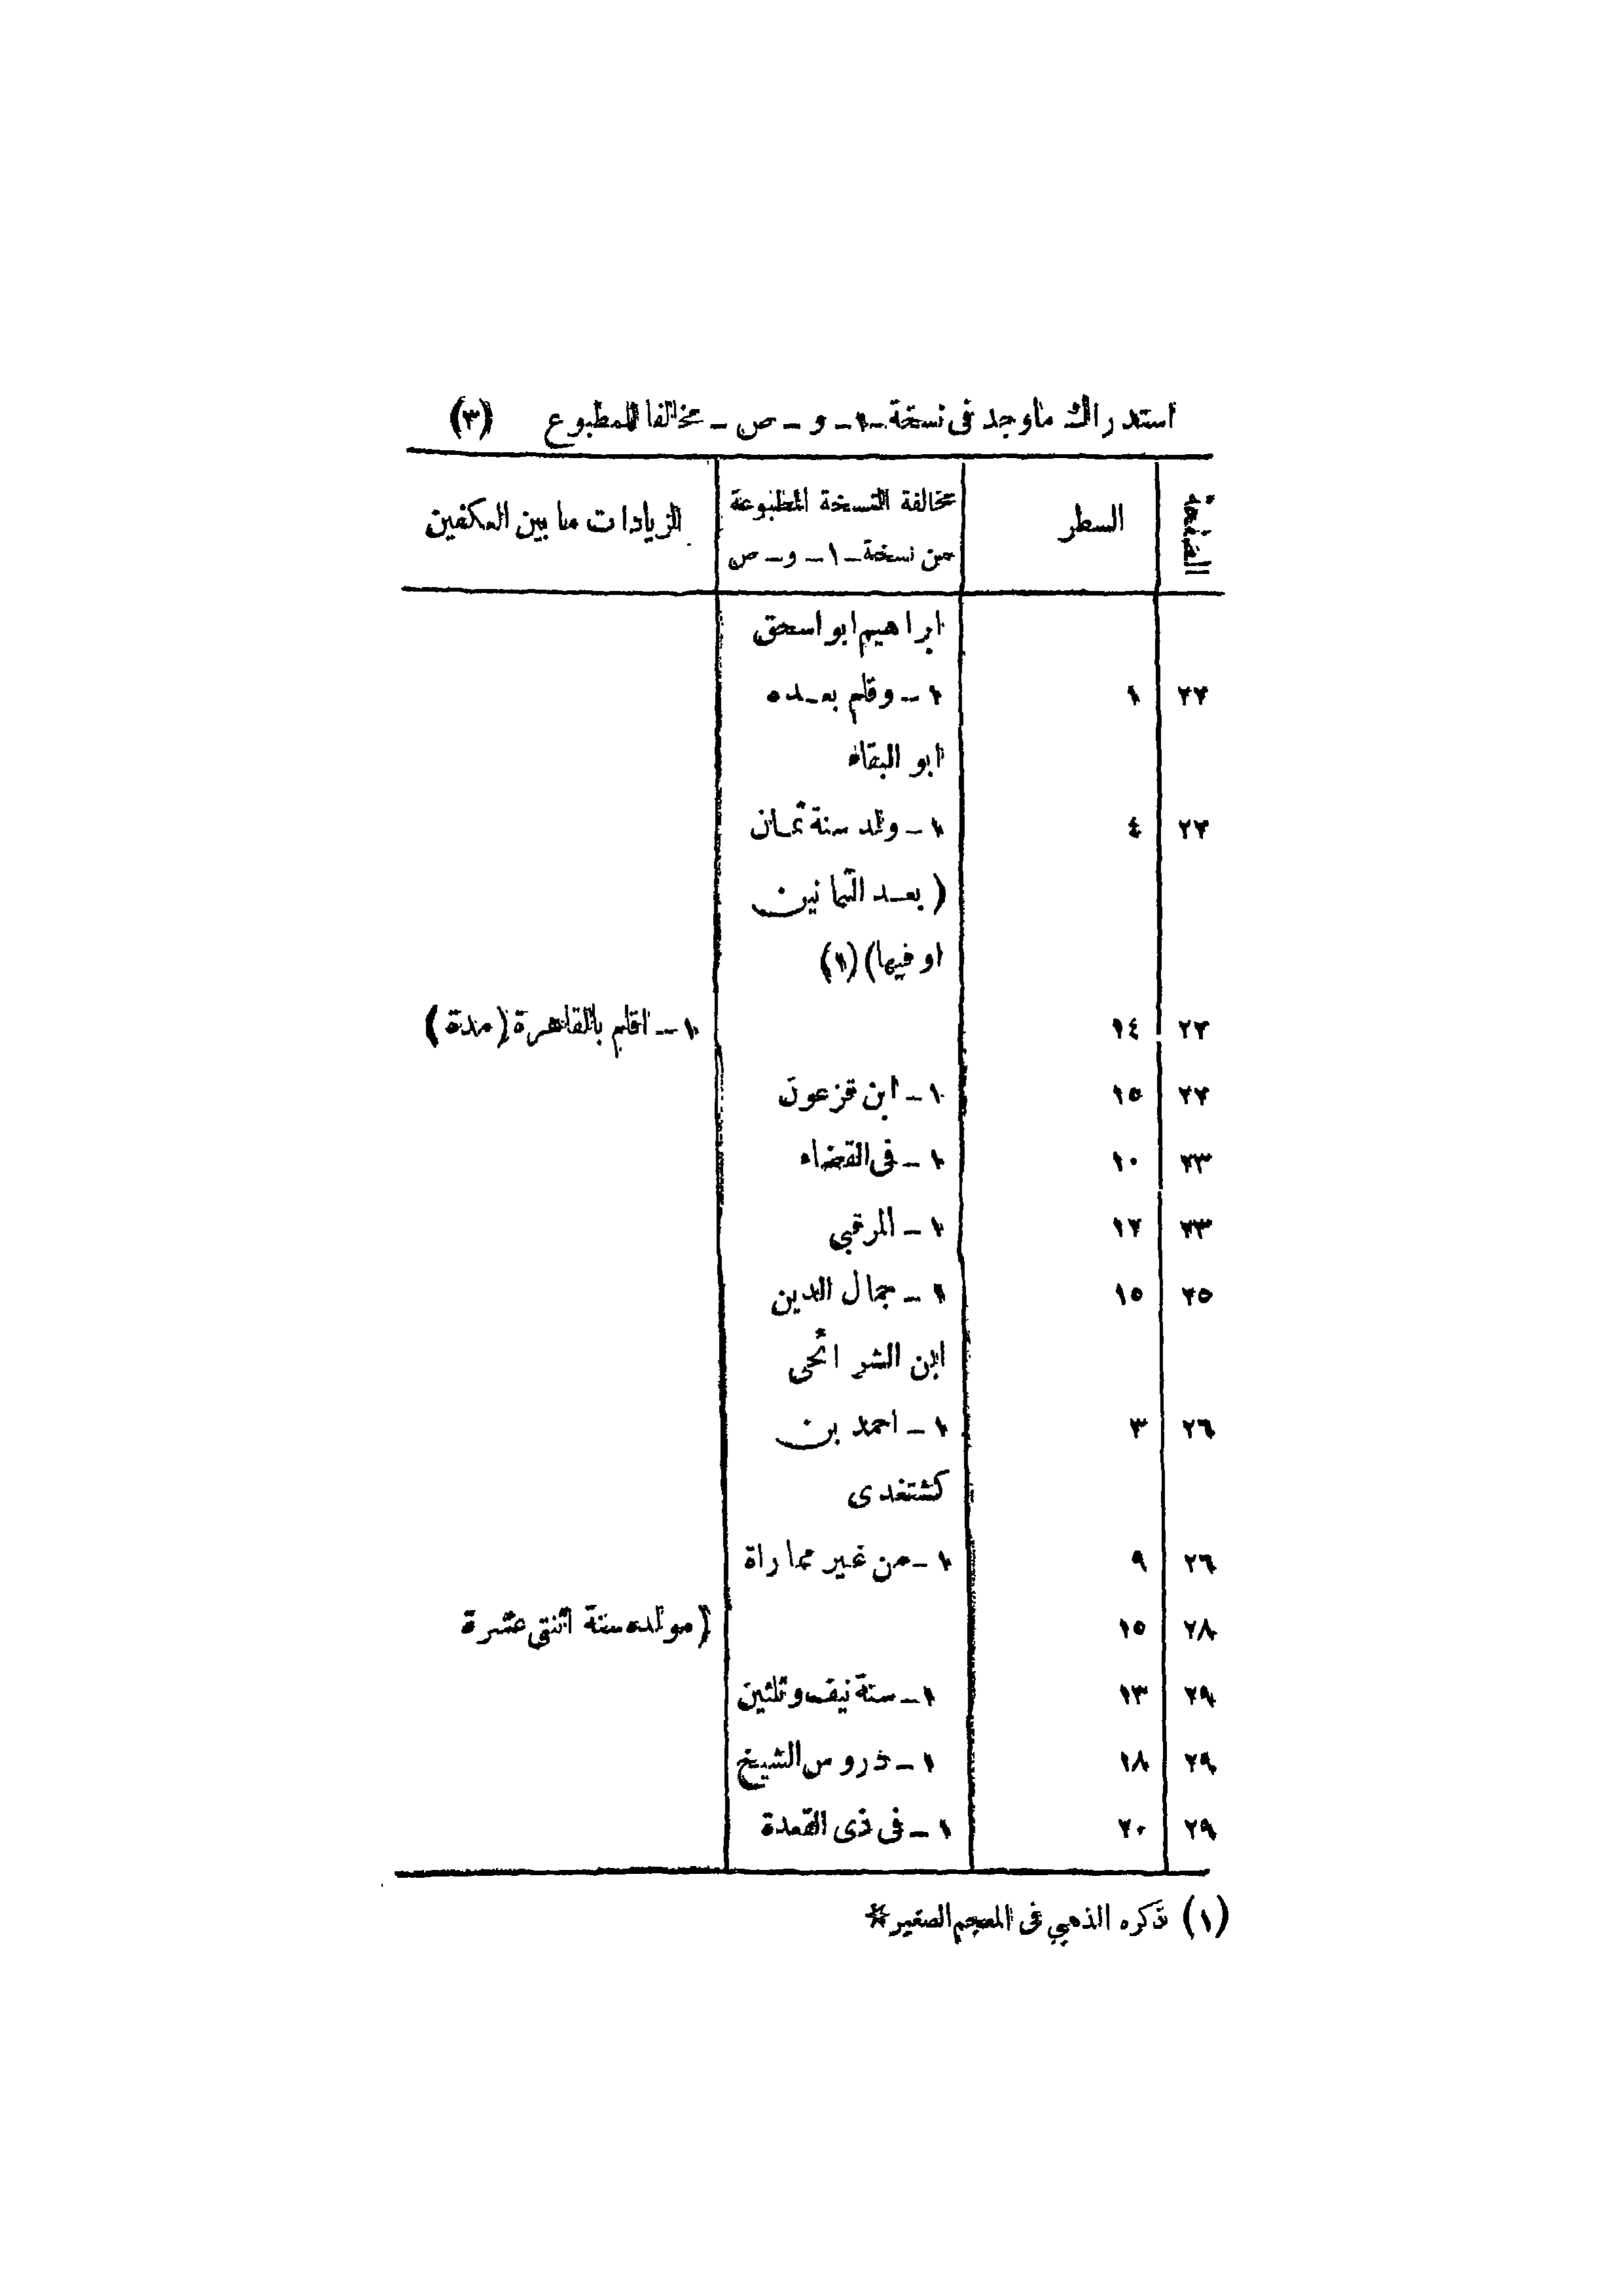 استدراك ماوجد فى نسخة ــ ١ ــ و ــ ص ــ مخالفا للمطبوع (٣)
الصفحة السطر مخالفة النسخة المطبوعة الزيادات ما بين المكفين
من نسخة ــ ١ ــ و ــ ص
ابراهيم ابو اسحق
٢٢ ١ ١ ــ وقلم بعده
ابو البقاء
٢٢ ٤ ١ ــ ولد سنة ثمان
( بعد الثمانين
او فيها) (١)
٢٢ ١٤ ١ ــ اقلم بالقاهرة (مدة)
٢٢ ١٥ ١ ــ ابن قزعون
٢٣ ١٠ ١ ــ فى القضاء
٢٣ ١٢ ١ ــ المرقبى
٢٥ ١٥ ١ ــ جمال الدين
ابن الشرائحى
٢٦ ٣ ١ ــ احمد بن
كشتغدى
٢٦ ٩ ١ ــ من غير مماراة
٢٨ ١٥ (مولده سنة اثنتى عشرة
٢٩ ١٣ ١ ــ سنة نيف وثلثين
٢٩ ١٨ ١ ــ دروس الشيخ
٢٩ ٢٠ ١ ــ فى ذى القعدة
(١) ذكره الذهبي فى المعجم الصغير *